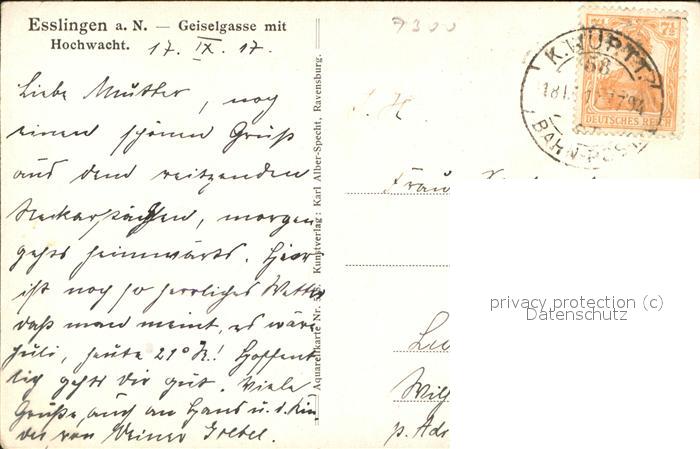 Esslingen a. N. — Geiselgasse mit
Hochwacht. 17. IX. 17.
Liebe Mutter, noch
einen schönen Gruß
aus dem reitzenden
morgen
gehts heimwärts. Hier
ist noch so herrliches Wetter
daß man meint, es wäre
Juli, heute 21° R.! Hoffent
lich gehts dir gut. Viele
Grüße, auch an Hans u. d. Kin
der von Deiner
Aquarellkarte Nr. Kunstverlag: Karl Alber-Specht, Ravensburg.
7300
K. WÜRTT.
58
BAHNPOST
7½ 7½
DEUTSCHES REICH
Frau
p. Adr
privacy protection (c)
Datenschutz